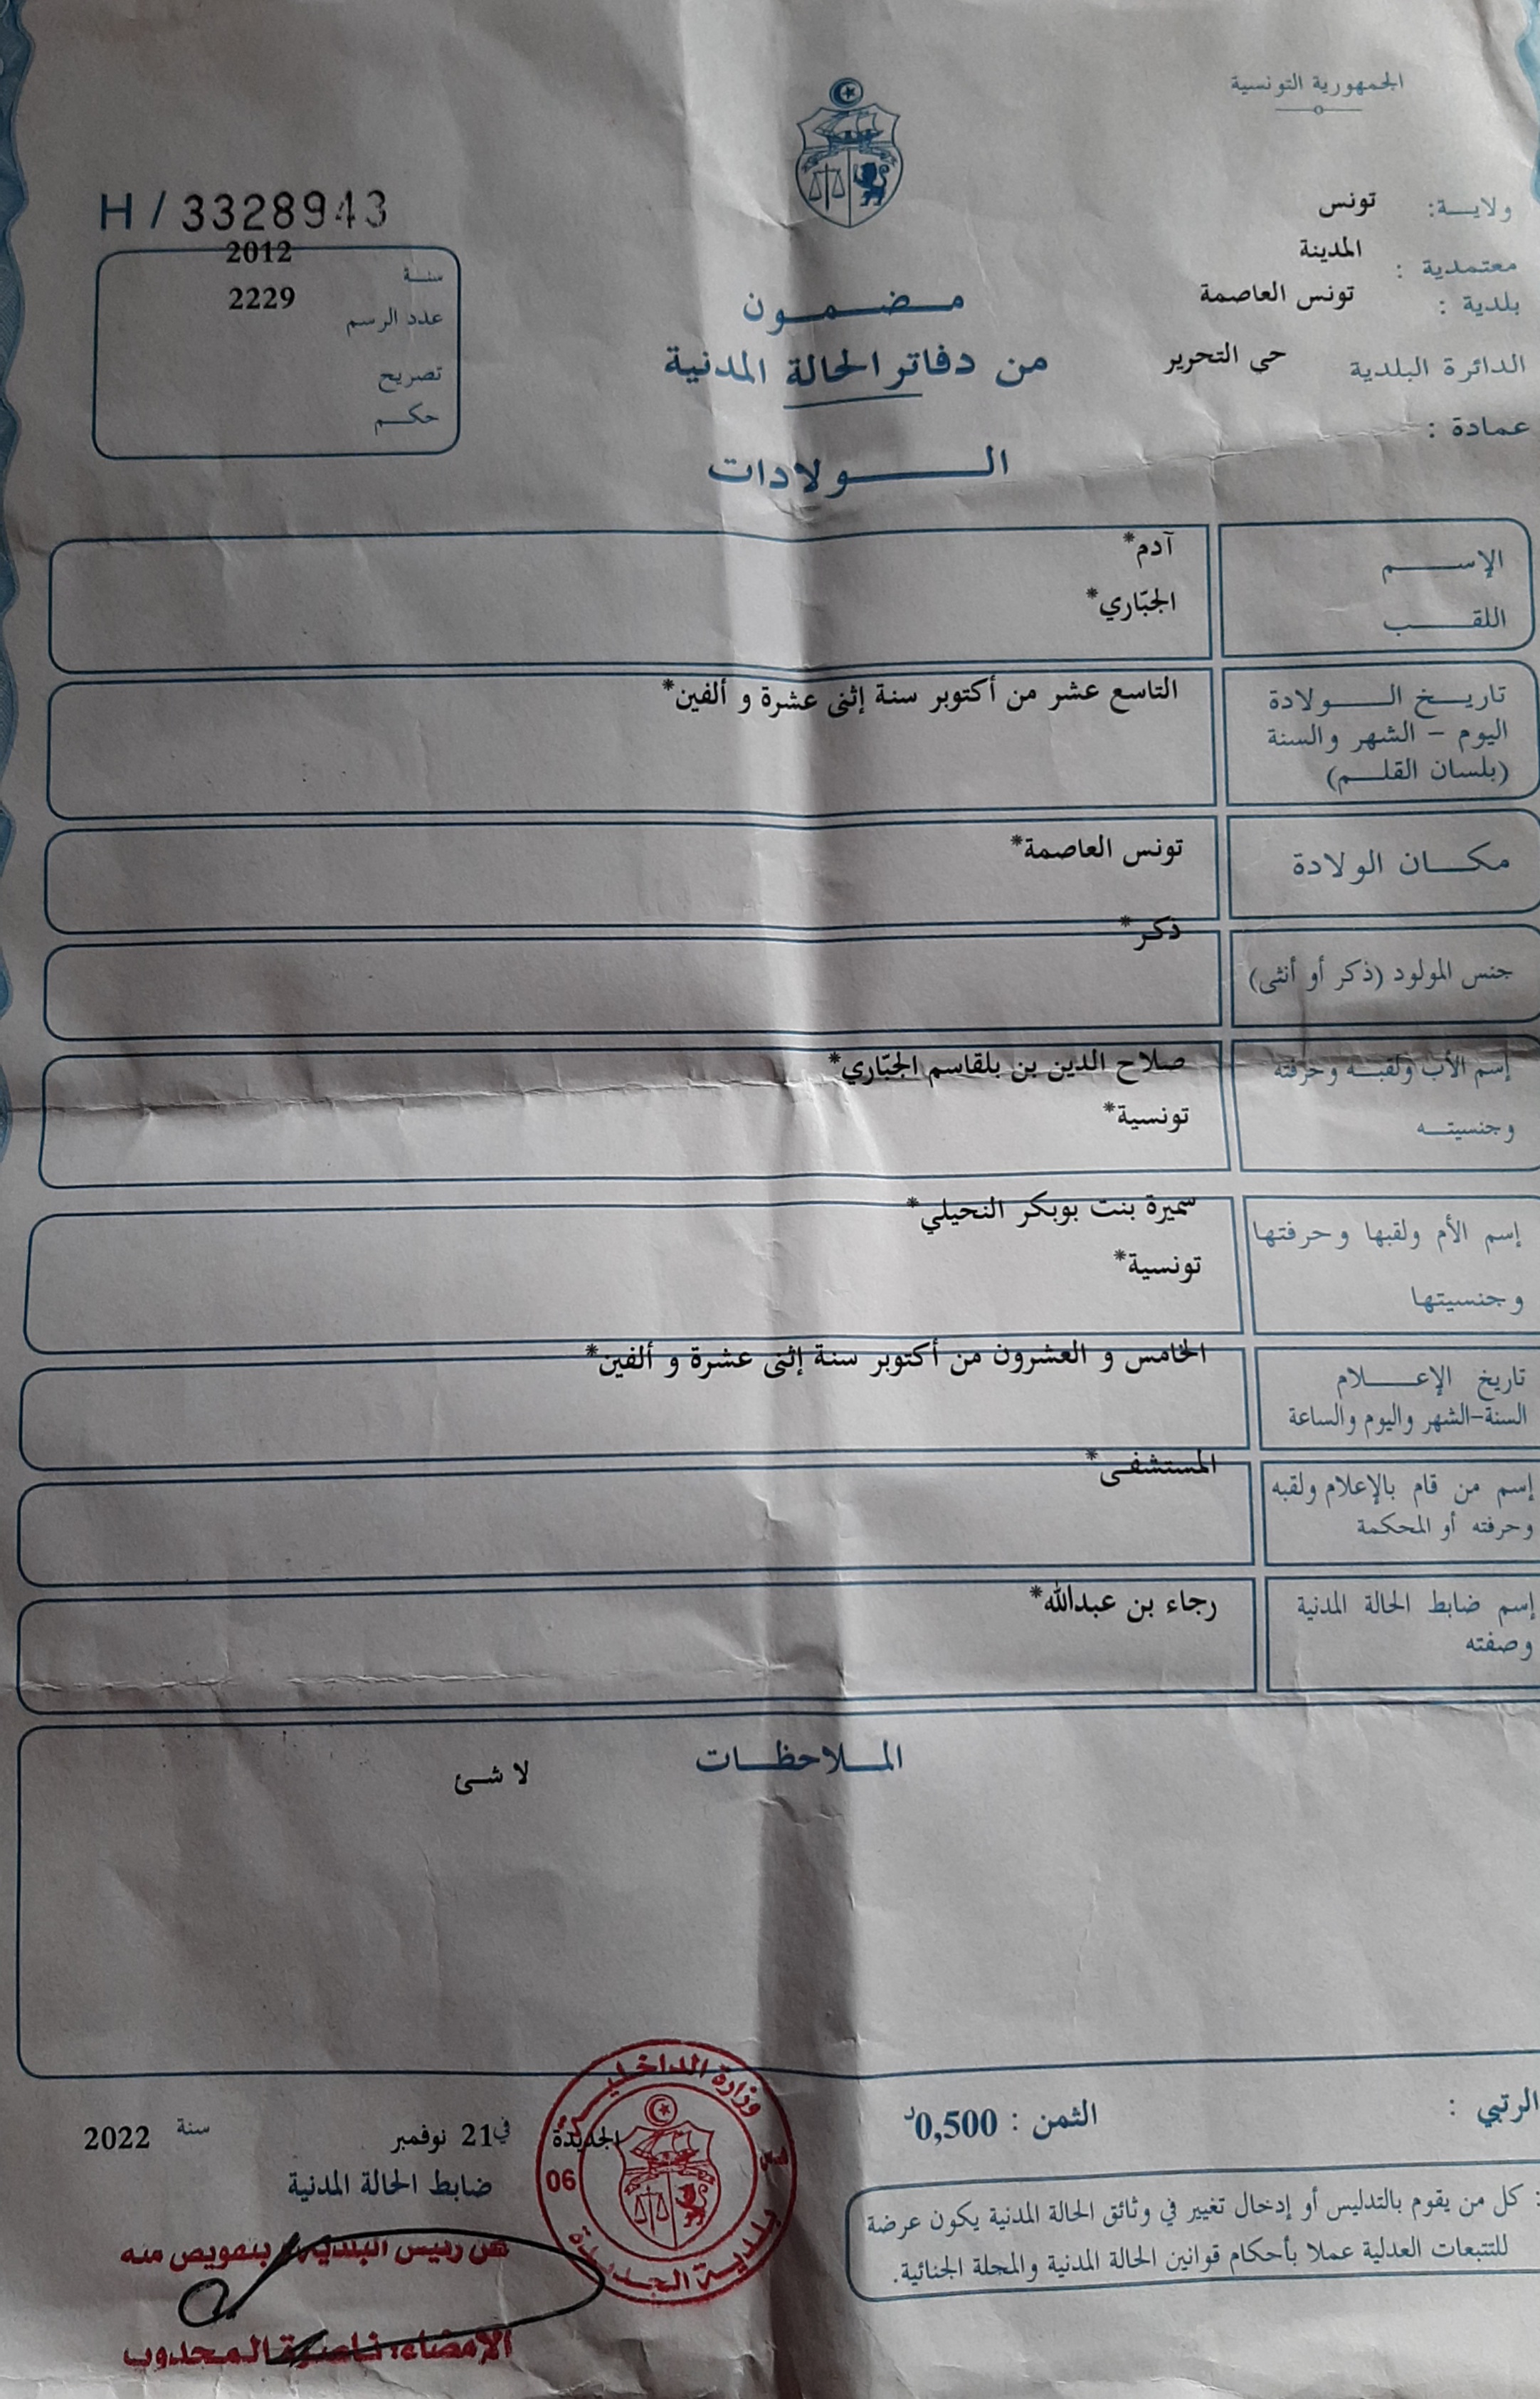 الجمهورية التونسية
H / 3328943
ولاية: تونس
معتمدية : المدينة
بلدية : تونس العاصمة
الدائرة البلدية حي التحرير
عمادة :
سنة 2012
عدد الرسم 2229
تصريح
حكم
مضمون
من دفاتر الحالة المدنية
الولادات
الإسم آدم*
اللقب الجبّاري*
تاريخ الولادة التاسع عشر من أكتوبر سنة إثنى عشرة و ألفين*
اليوم – الشهر والسنة
(بلسان القلم)
مكان الولادة تونس العاصمة*
جنس المولود (ذكر أو أنثى) ذكر*
إسم الأب ولقبه وحرفته صلاح الدين بن بلقاسم الجبّاري*
وجنسيته تونسية*
إسم الأم ولقبها وحرفتها سميرة بنت بوبكر النحيلي*
وجنسيتها تونسية*
تاريخ الإعلام الخامس و العشرون من أكتوبر سنة إثنى عشرة و ألفين*
السنة-الشهر واليوم والساعة
إسم من قام بالإعلام ولقبه المستشفى*
وحرفته أو المحكمة
إسم ضابط الحالة المدنية رجاء بن عبدالله*
وصفته
الملاحظات
لا شئ
الرتبي :
الثمن : 0,500د
: كل من يقوم بالتدليس أو إدخال تغيير في وثائق الحالة المدنية يكون عرضة
للتتبعات العدلية عملا بأحكام قوانين الحالة المدنية والمجلة الجنائية.
الجديدة في 21 نوفمبر سنة 2022
ضابط الحالة المدنية
عن رئيس البلدية بتفويض منه
الإمضاء: ناصرة المجدوب
وزارة الداخلية
06
بلدية الجديدة